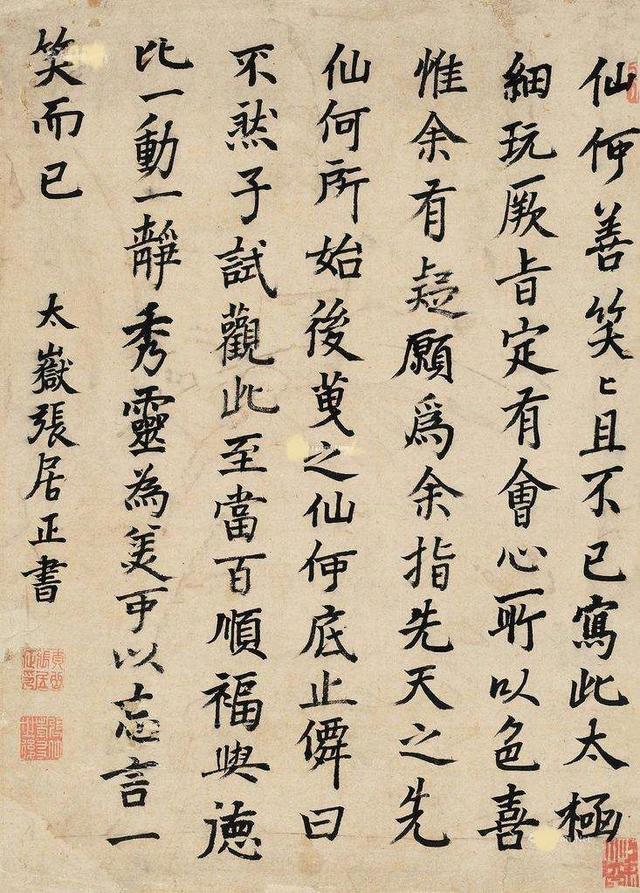 仙何善笑〻且不已寫此太極
細玩厥旨定有會心所以色喜
惟余有疑願爲余指先天之先
仙何所始後之仙何底止僊曰
不然子試觀此至當百順福與德
比一動一靜秀靈為美可以忘言一
笑而已
太嶽張居正書